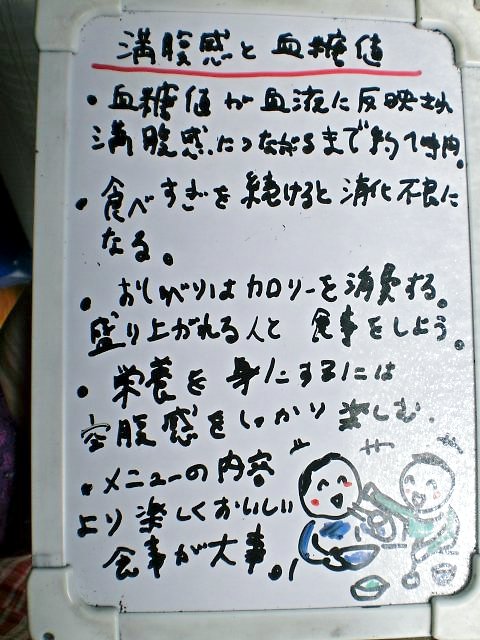 満腹感と血糖値
・血糖値が血液に反映され
満腹感につながるまで約1時間。
・食べすぎを続けると消化不良に
なる。
・おしゃべりはカロリーを消費する。
盛り上がれる人と食事をしよう。
・栄養を身にするには
空腹感をしっかり楽しむ.
・メニューの内容
より楽しくおいしい
食事が大事。!